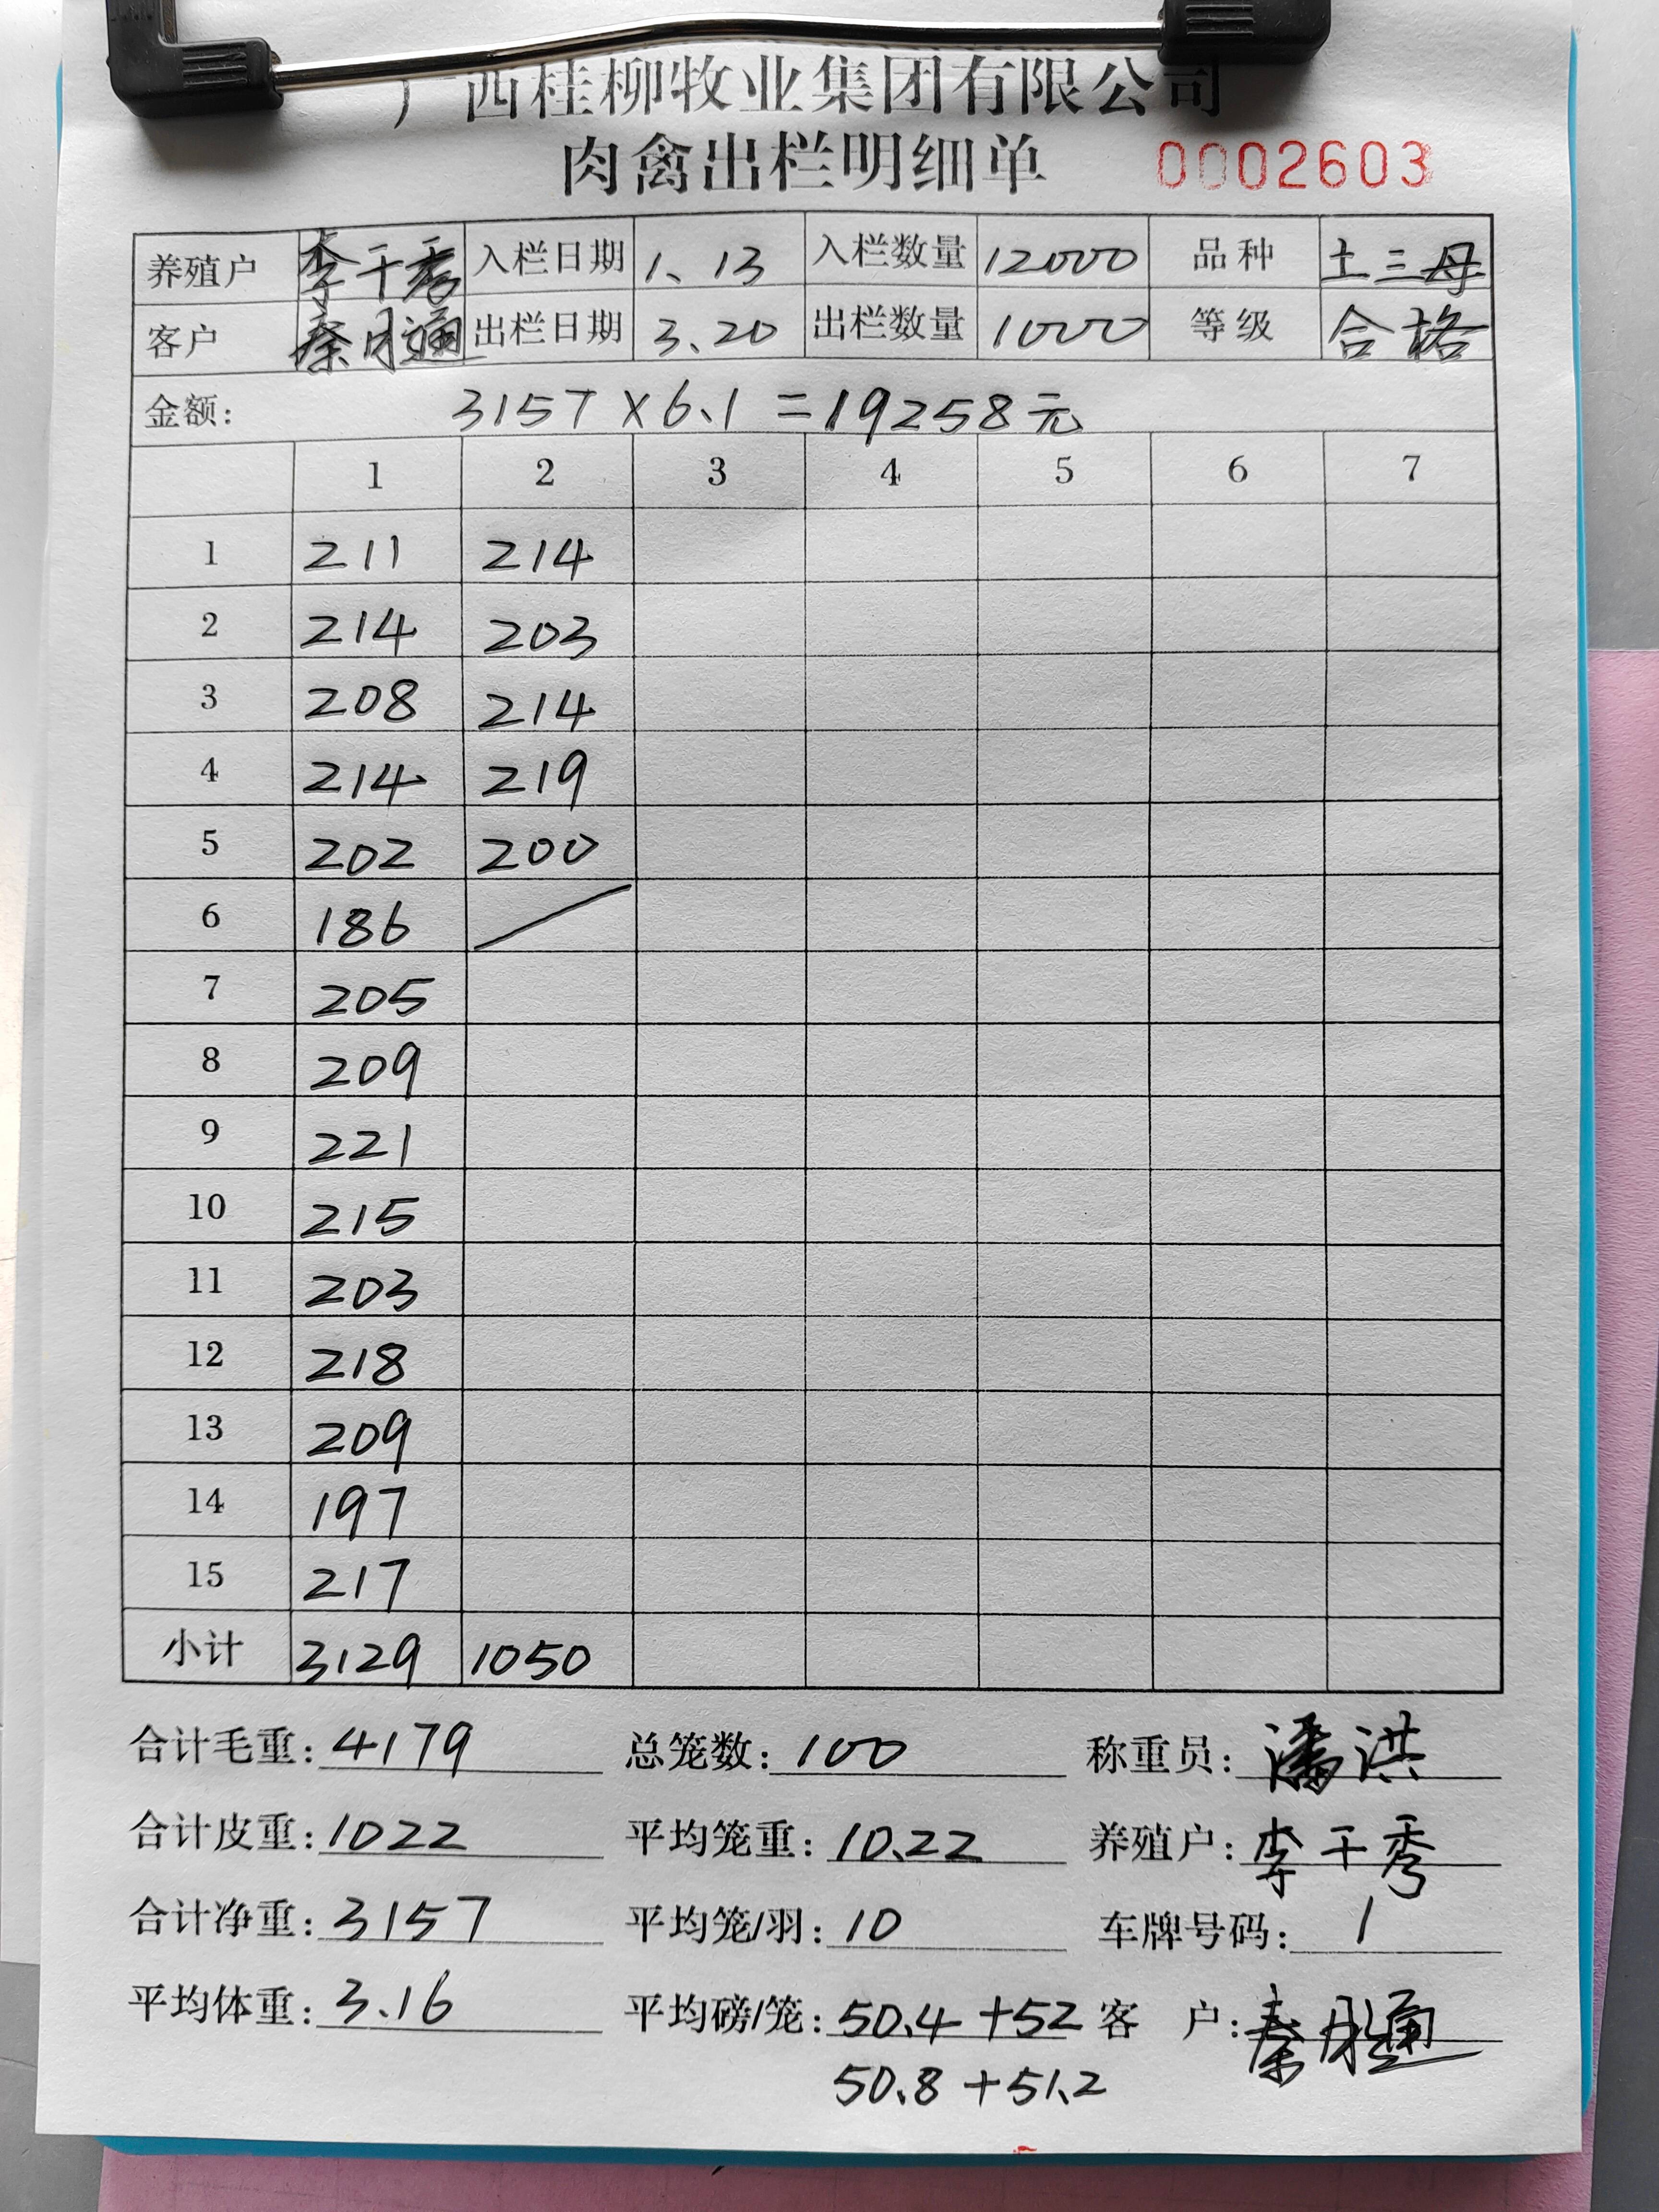 广西桂柳牧业集团有限公司
肉禽出栏明细单 0002603
养殖户 李干秀 入栏日期 1、13 入栏数量 12000 品种 土三母
客户 出栏日期 3.20 出栏数量 1000 等级 合格
金额: 3157×6.1=19258元
1 2 3 4 5 6 7
1 211 214
2 214 203
3 208 214
4 214 219
5 202 200
6 186
7 205
8 209
9 221
10 215
11 203
12 218
13 209
14 197
15 217
小计 3129 1050
合计毛重: 4179 总笼数: 100 称重员: 潘洪
合计皮重: 1022 平均笼重: 10.22 养殖户: 李干秀
合计净重: 3157 平均笼/羽: 10 车牌号码: 1
平均体重: 3.16 平均磅/笼: 50.4+52 客 户:
50.8+51.2